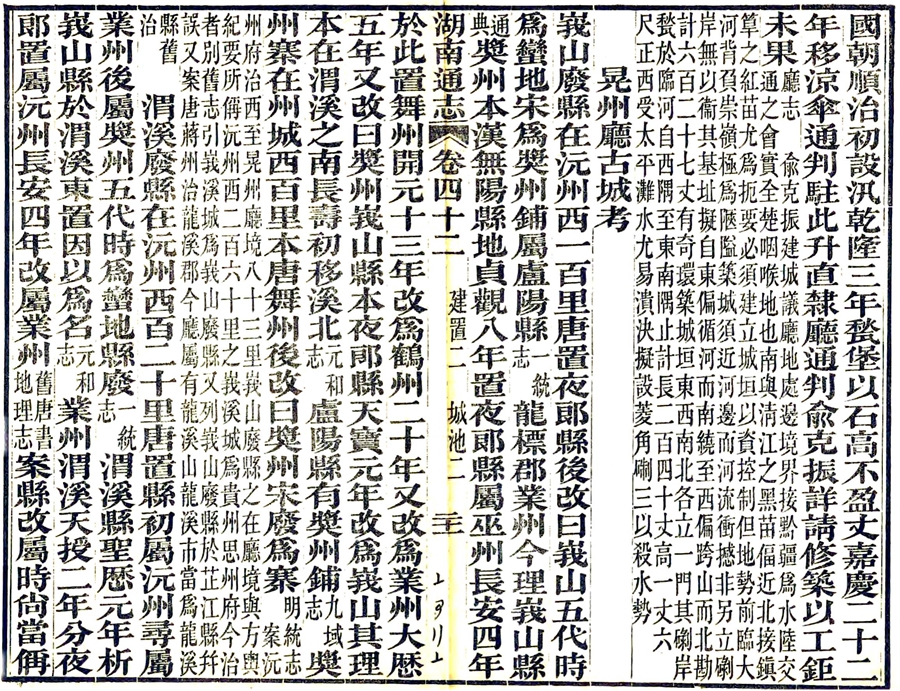 國朝順治初設汛乾隆三年甃堡以石高不盈丈嘉慶二十二
年移涼傘通判駐此升直隸廳通判俞克振詳請修築以工鉅
未果廳志 俞克振建城議廳地處邊境界接黔疆爲水陸交
通之會實全楚咽喉地也南與清江之黑苗偪近北接鎮
筸之紅苗尤爲扼要必須建立城垣以資控制但地勢前臨大
河背負崇嶺極爲陿隘築城須近河邊而河流衝撼非另立
岸無以衞其基址擬自東偏循河而南繞至西偏跨山而北勘
計六百二十七丈有奇環築城垣東西南北各立一門其岸
甃於臨河自西隅至東南隅止計長二百四十丈高一丈六
尺正西受太平灘水尤易潰決擬設菱角三以殺水勢
晃州廳古城考
峩山廢縣在沅州西一百里唐置夜郎縣後改曰峩山五代時
爲蠻地宋爲奬州鋪屬盧陽縣一統志龍標郡業州今理峩山縣
通典奬州本漢無陽縣地貞觀八年置夜郎縣屬巫州長安四年
湖南通志 卷四十二 建置二 城池二
於此置舞州開元十三年改爲鶴州二十年又改爲業州大歷
五年又改曰奬州峩山縣本夜郎縣天寶元年改爲峩山其理
本在渭溪之南長壽初移溪北元和志盧陽縣有奬州鋪九域志奬
州寨在州城西百里本唐舞州後改曰奬州宋廢爲寨明統志 案沅
州府治西至晃州廳境八十三里峩山廢縣之在廳境與方輿
紀要所偁沅州西二百六十里之峩溪城爲貴州思州府今治
者別舊志引峩溪城爲峩山廢縣又列峩山廢縣於芷江縣幷
誤又案唐蔣州治龍溪郡今廳屬有龍溪山龍溪市當爲龍溪
縣舊治 渭溪廢縣在沅州西百二十里唐置縣初屬沅州尋屬
業州後屬奬州五代時爲蠻地縣廢一統志渭溪縣聖歷元年析
峩山縣於渭溪東置因以爲名元和志業州渭溪天授二年分夜
郎置屬沅州長安四年改屬業州舊唐書地理志案縣改屬時尙當偁